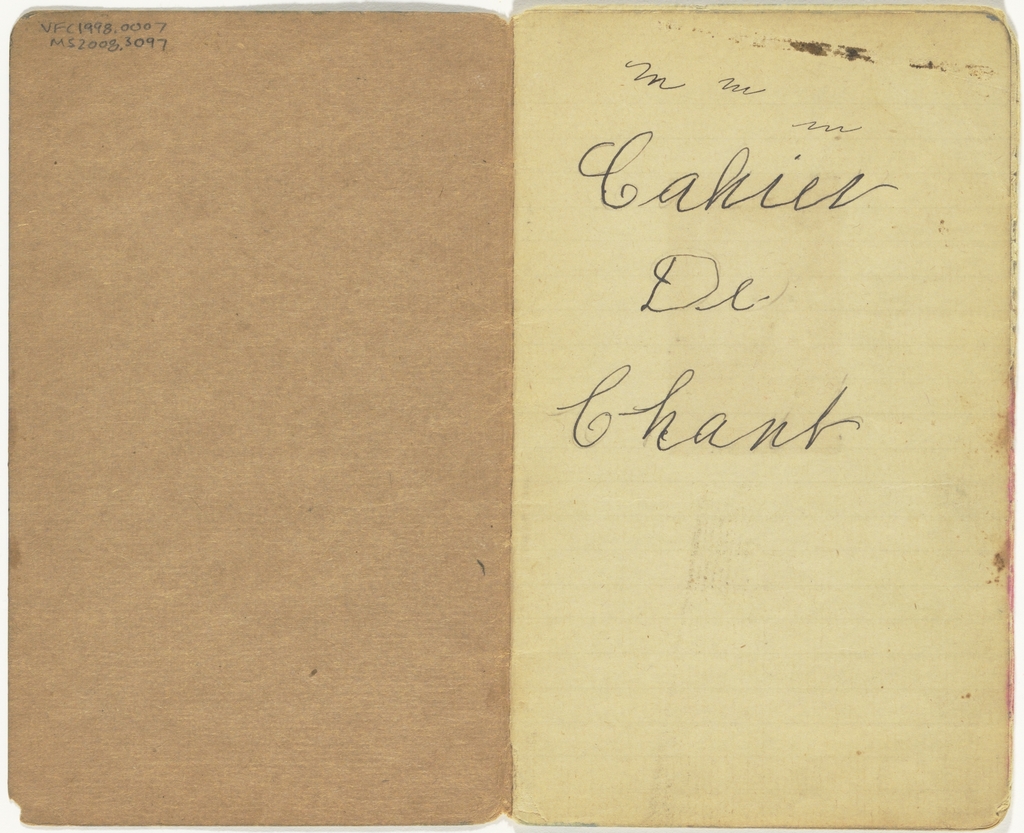 VFC1998.0007
MS2008.3097
m m
m
Cahier
De
Chant